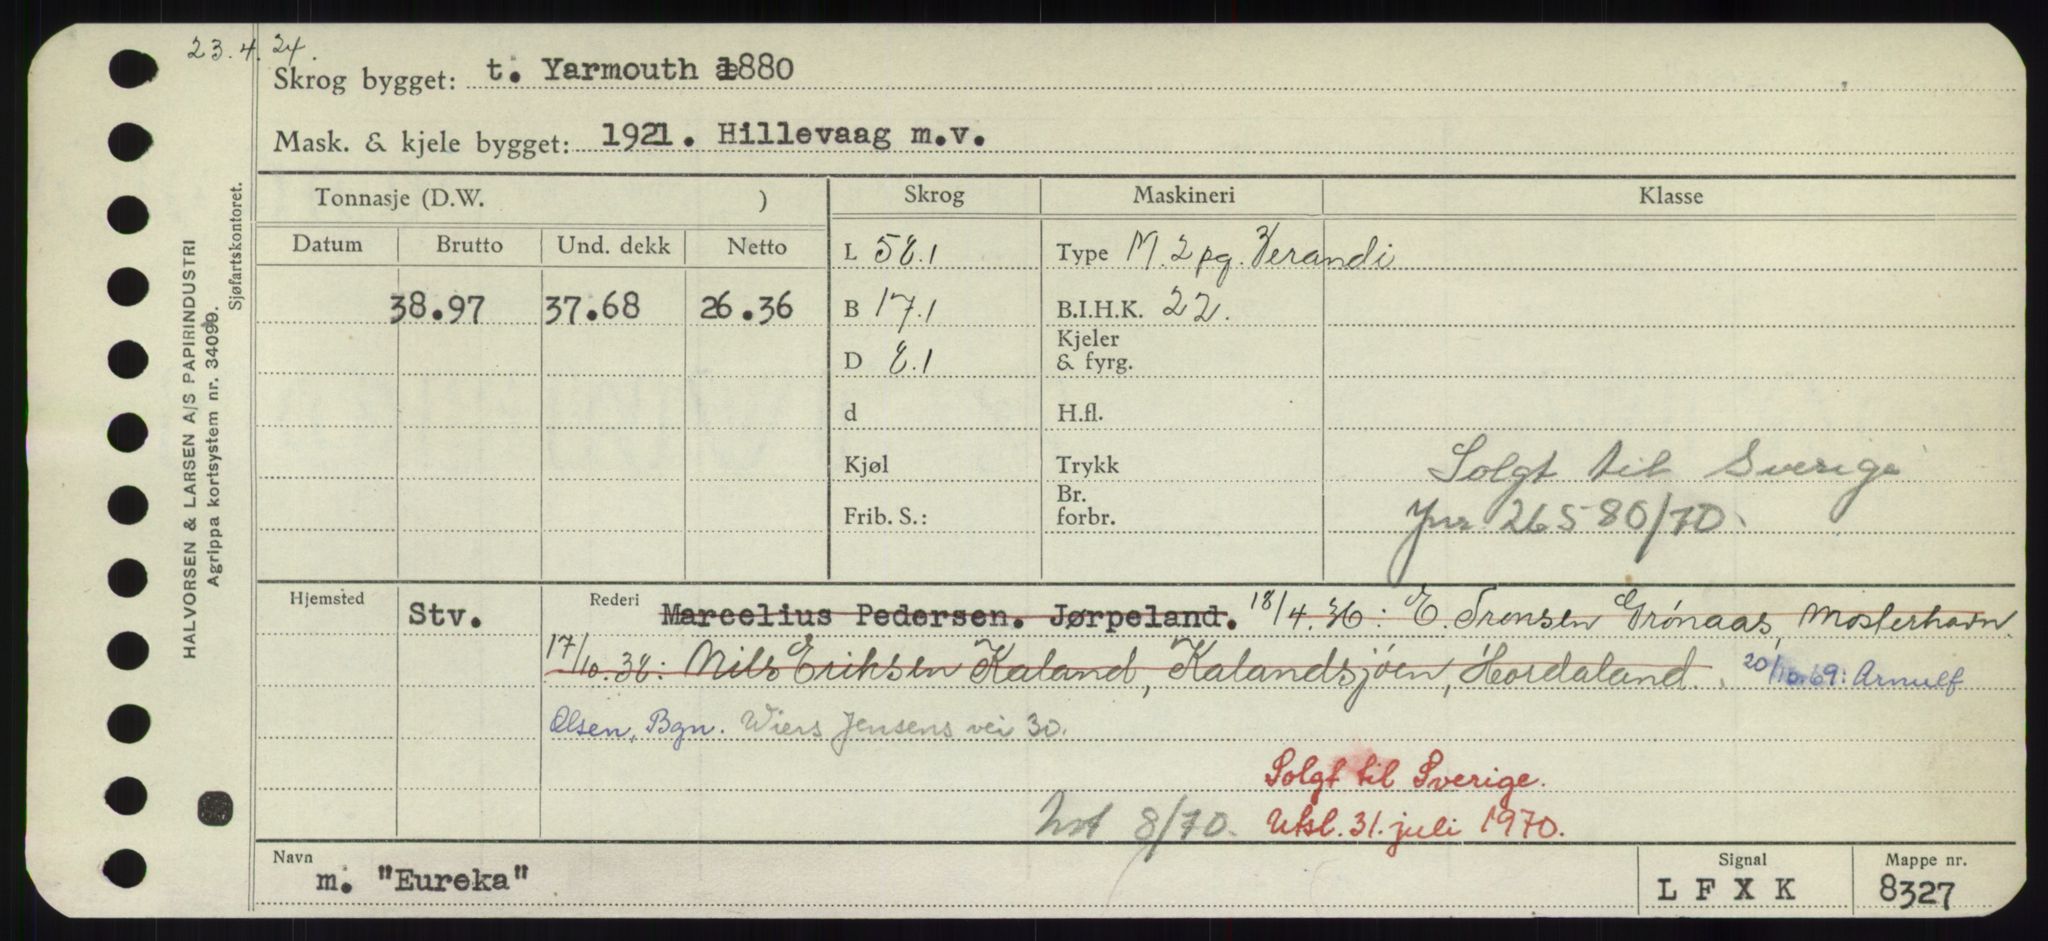 23.4.24.
Skrog bygget: t. Yarmouth 1880
Mask. & kjele bygget: 1921. Hillevaag m.v.
HALVORSEN & LARSEN A/S PAPIRINDUSTRI
Agrippa kortsystem nr. 34099.
Sjøfartskontoret.
Tonnasje (D.W. ) Skrog Maskineri Klasse
Datum Brutto Und. dekk Netto
L 58.1 Type M. 2 pg. Verandi
38.97 37.68 26.36 B 17.1 B.I.H.K. 22.
D 8.1 Kjeler & fyrg.
d H.fl.
Kjøl Trykk Solgt til Sverige
Frib. S.: Br. forbr. Jnr 26580/70.
Hjemsted Stv. Rederi Marcelius Pedersen. Jørpeland. 18/4.36: E. Tronsen Grónaas, Mosterhavn.
17/10.38: Nils Eriksen Kaland, Kalandsjöen, Hordaland. 20/10.69: Arnulf
Olsen, Bgn. Wiers Jensens vei 30.
Solgt til Sverige.
8/70. Utsl. 31. juli 1970.
Navn m. "Eureka" Signal L F X K Mappe nr. 8327